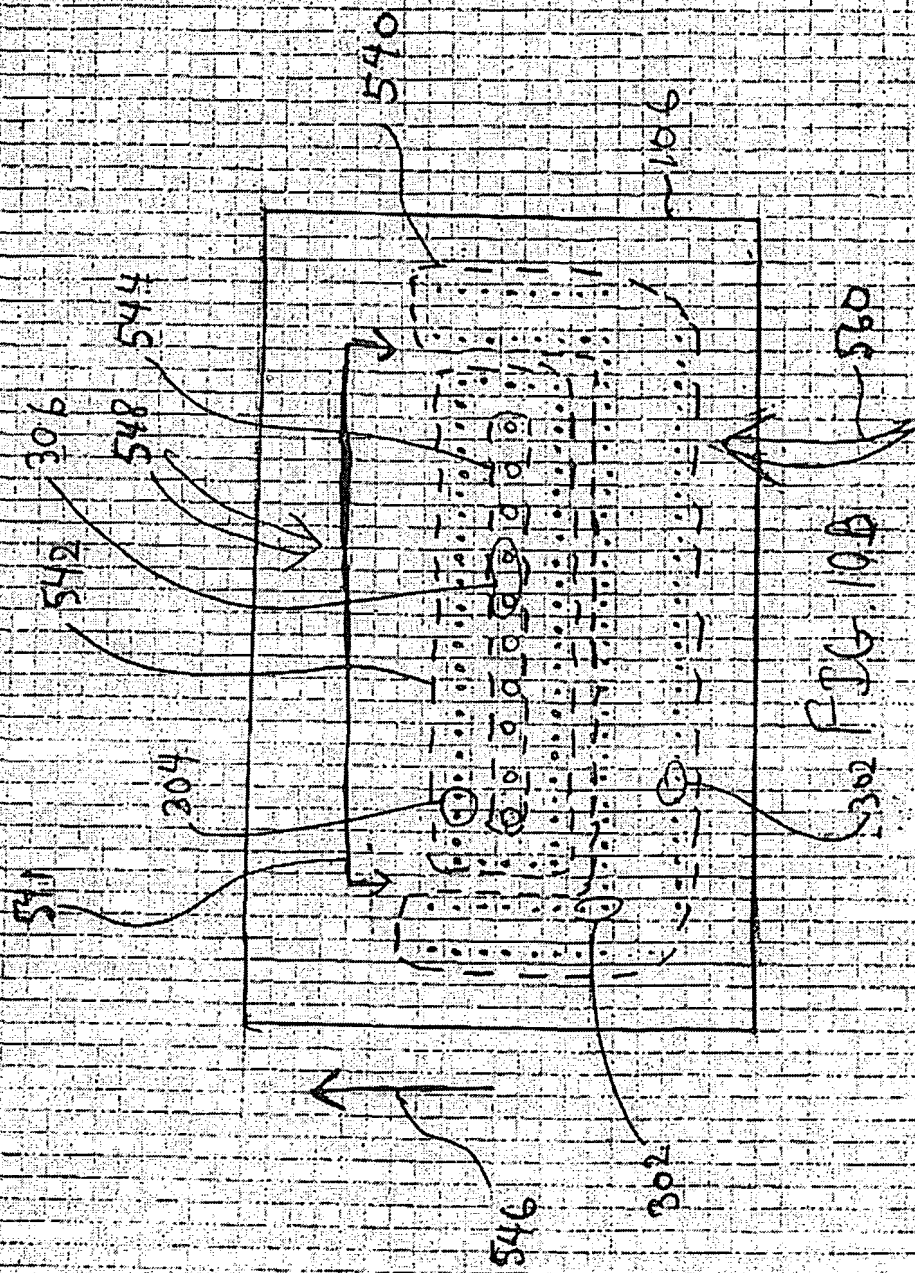 540
106
544
548
306
542
304
541
560
FIG. 10B
302
302
546